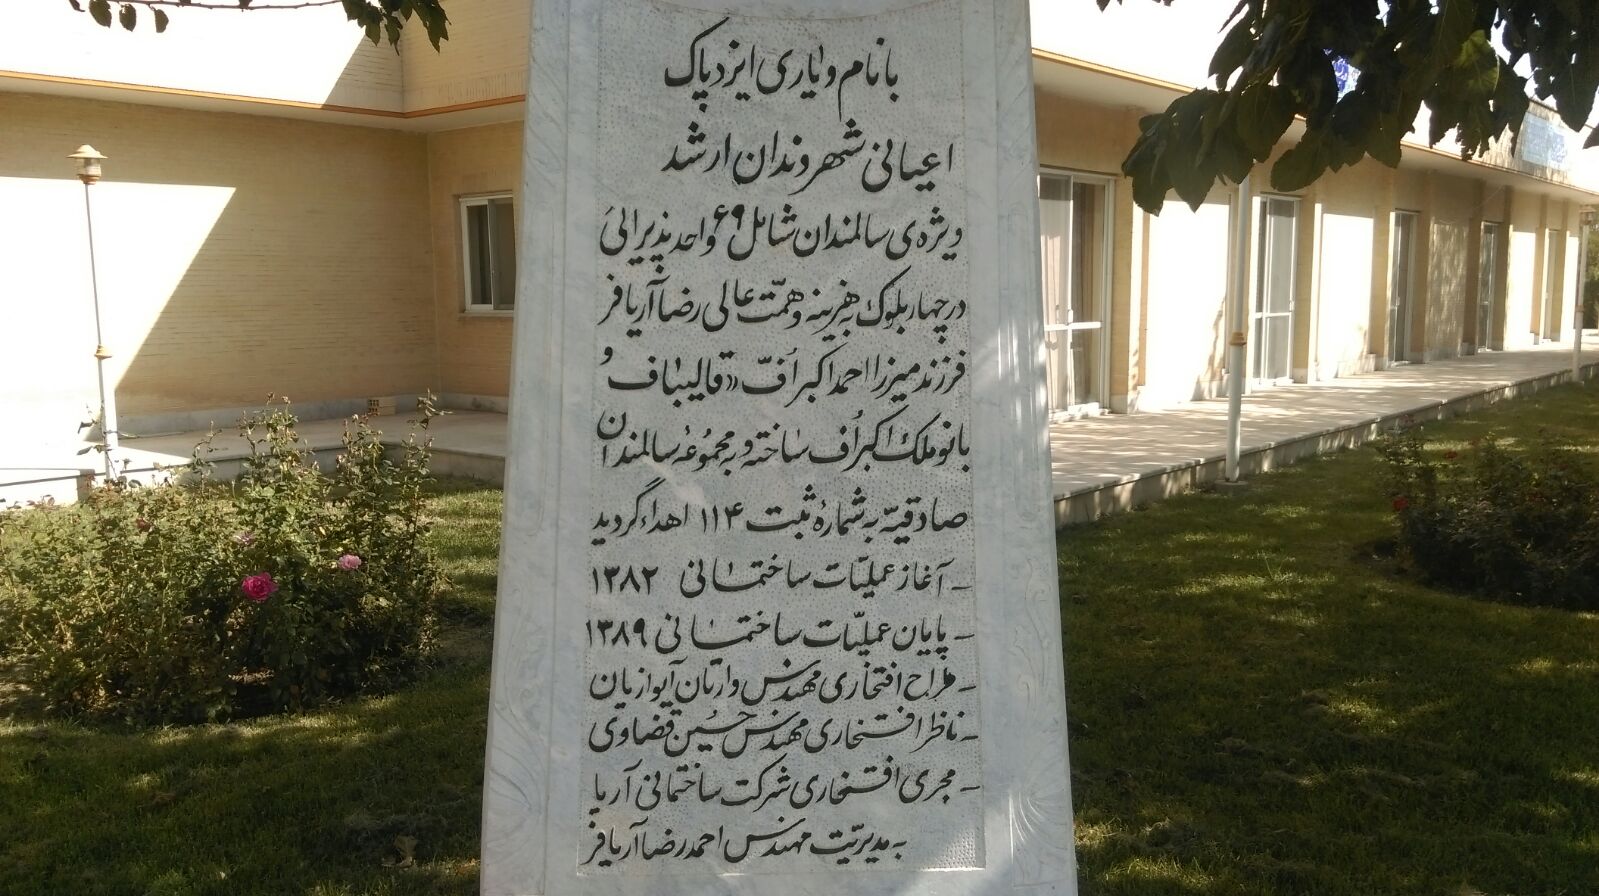 با نام و یاری ایزد پاک
اعیانی شهروندان ارشد
ویژه‌ی سالمندان شامل ۶۹ واحد پذیرائی
در چهار بلوک به هزینه و همّت عالی رضا آریافر
فرزند میرزا احمد اکبراُفّ «قالیباف و
بانو ملک اکبراُف ساخته و به مجموعهٔ سالمندان
صادقیّه به شمارهٔ ثبت ۱۱۴ اهداء گردید
- آغاز عملیّات ساختمانی ۱۳۸۲
- پایان عملیّات ساختمانی ۱۳۸۹
- طراح افتخاری مهندس وارتان آیوازیان
- ناظر افتخاری مهندس حسین قضاوی
- مجری افتخاری شرکت ساختمانی آریا
به مدیریّت مهندس احمدرضا آریافر